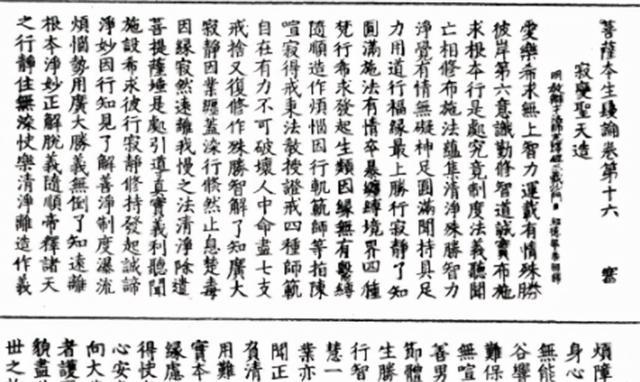 菩薩本生鬘論卷第十六 響
寂變聖天造
愛樂希求無上智力運載有情殊勝
彼岸第六意識勤修智道誠實布施
求根本行是處究竟制度法義聽聞
亡相修布施法蘊集清淨殊勝智力
淨覺有情無礙神足圓滿聞持具足
力用道行福緣最上勝行寂靜了知
圓滿施法有情卒暴纏縛境界四種
梵行希求發起生類因緣無有繫縛
隨順造作煩惱因行軌範師等招陳
喧寂得戒秉法教授證戒四種師範
自在有力不可破壞人中命盡七支
戒捨又復修作殊勝智解了知廣大
寂靜因業纏蓋染行倏然止息楚毒
因緣寂然遠離我慢之法清淨除遣
菩提薩埵是處引導真實義利聽聞
施設希求彼行寂靜修持發起誠諦
淨妙因行知見了解善淨制度瀑流
煩惱勢用廣大勝義無倒了知遠離
根本淨妙正解脫義隨順帝釋諸天
之行靜住無染忮樂清淨離造作義
煩障
身心
無能
谷響
難保
無喧
善男
節體
生勝
行智
慧一
業亦
聞正
負清
用難
實本
緣慮
得使
心安
向大
者護
貌盡
世之